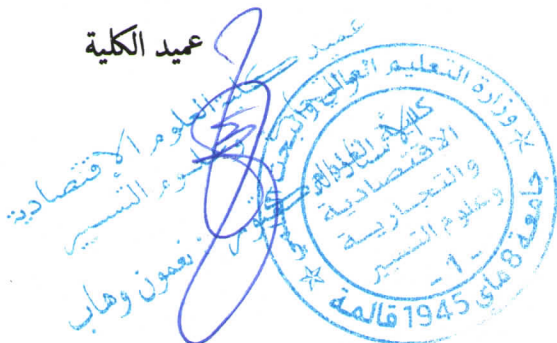 عميد الكلية
عميد كلية العلوم الإقتصادية
وعلوم التسيير
نعمون وهاب
وزارة التعليم العالي والبحث العلمي
جامعة 8 ماي 1945 قالمة
كلية العلوم
الاقتصادية
والتجارية
وعلوم التسيير
- 1 -